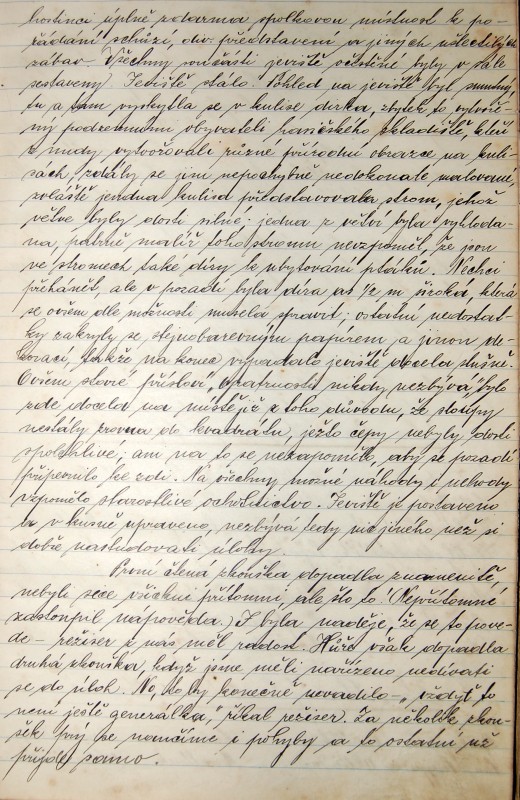 hostinci úplně zdarma spolkovou místnost k po-
řádání schůzí, div. představení a jiných ušlechtilých
zábav. Všechny součásti jeviště očištěné byly v sále
sestaveny. Jeviště stálo. Pohled na jeviště byl smutný,
tu a tam vyskytla se v kulise dírka, zbytek to výtvoře-
ný podzemními obyvateli hasičského skladiště, kteří
z nudy vytvořovali různé přírodní obrazce na kuli-
sách, zdály se jim nepochybně nedokonale malované,
zvláště jedna kulisa představovala strom, jehož
větve byly dosti silné; jedna z větví byla vyhloda-
na, patrně malíř toho stromu nevzpomněl, že jsou
ve stromech také díry k ubytování ptáků. Nechci
přehánět, ale v pozadí byla díra as 1/2 m široká, která
se ovšem dle možnosti musela spravit; ostatní nedostat-
ky zakryly se stejnobarevným papírem a jinou de-
korací, takže na konec vypadalo jeviště docela slušně.
Ovšem staré přísloví, "opatrnosti nikdy nezbývá", bylo
zde docela na místě již z toho důvodu, že sloupy
nestály zrovna do kvadrátu, ježto čepy nebyly dosti
spolehlivé; ani na to se nezapomnělo, aby se pozadí
připevnilo ke zdi. Na všechny možné náhody i nehody
vzpomělo starostlivé ochotnictvo. Jeviště je postaveno
a vkusně upraveno, nezbývá tedy nic jiného než si
dobře nastudovati úlohy.
První čtená zkouška dopadla znamenitě,
nebyli sice všichni přítomni, ale šlo to! (Nepřítomné
zastoupil nápověda.) I byla naděje, že se to pove-
de - režiser z nás měl radost. Hůře však dopadla
druhá zkouška, když jsme měli nařízeno nedívati
se do úloh. No, to by konečně nevadilo - "vždyť to
není ještě generálka", říkal režiser. Za několik zkou-
šek prý se naučíme i pohyby a to ostatní už
přijde samo.